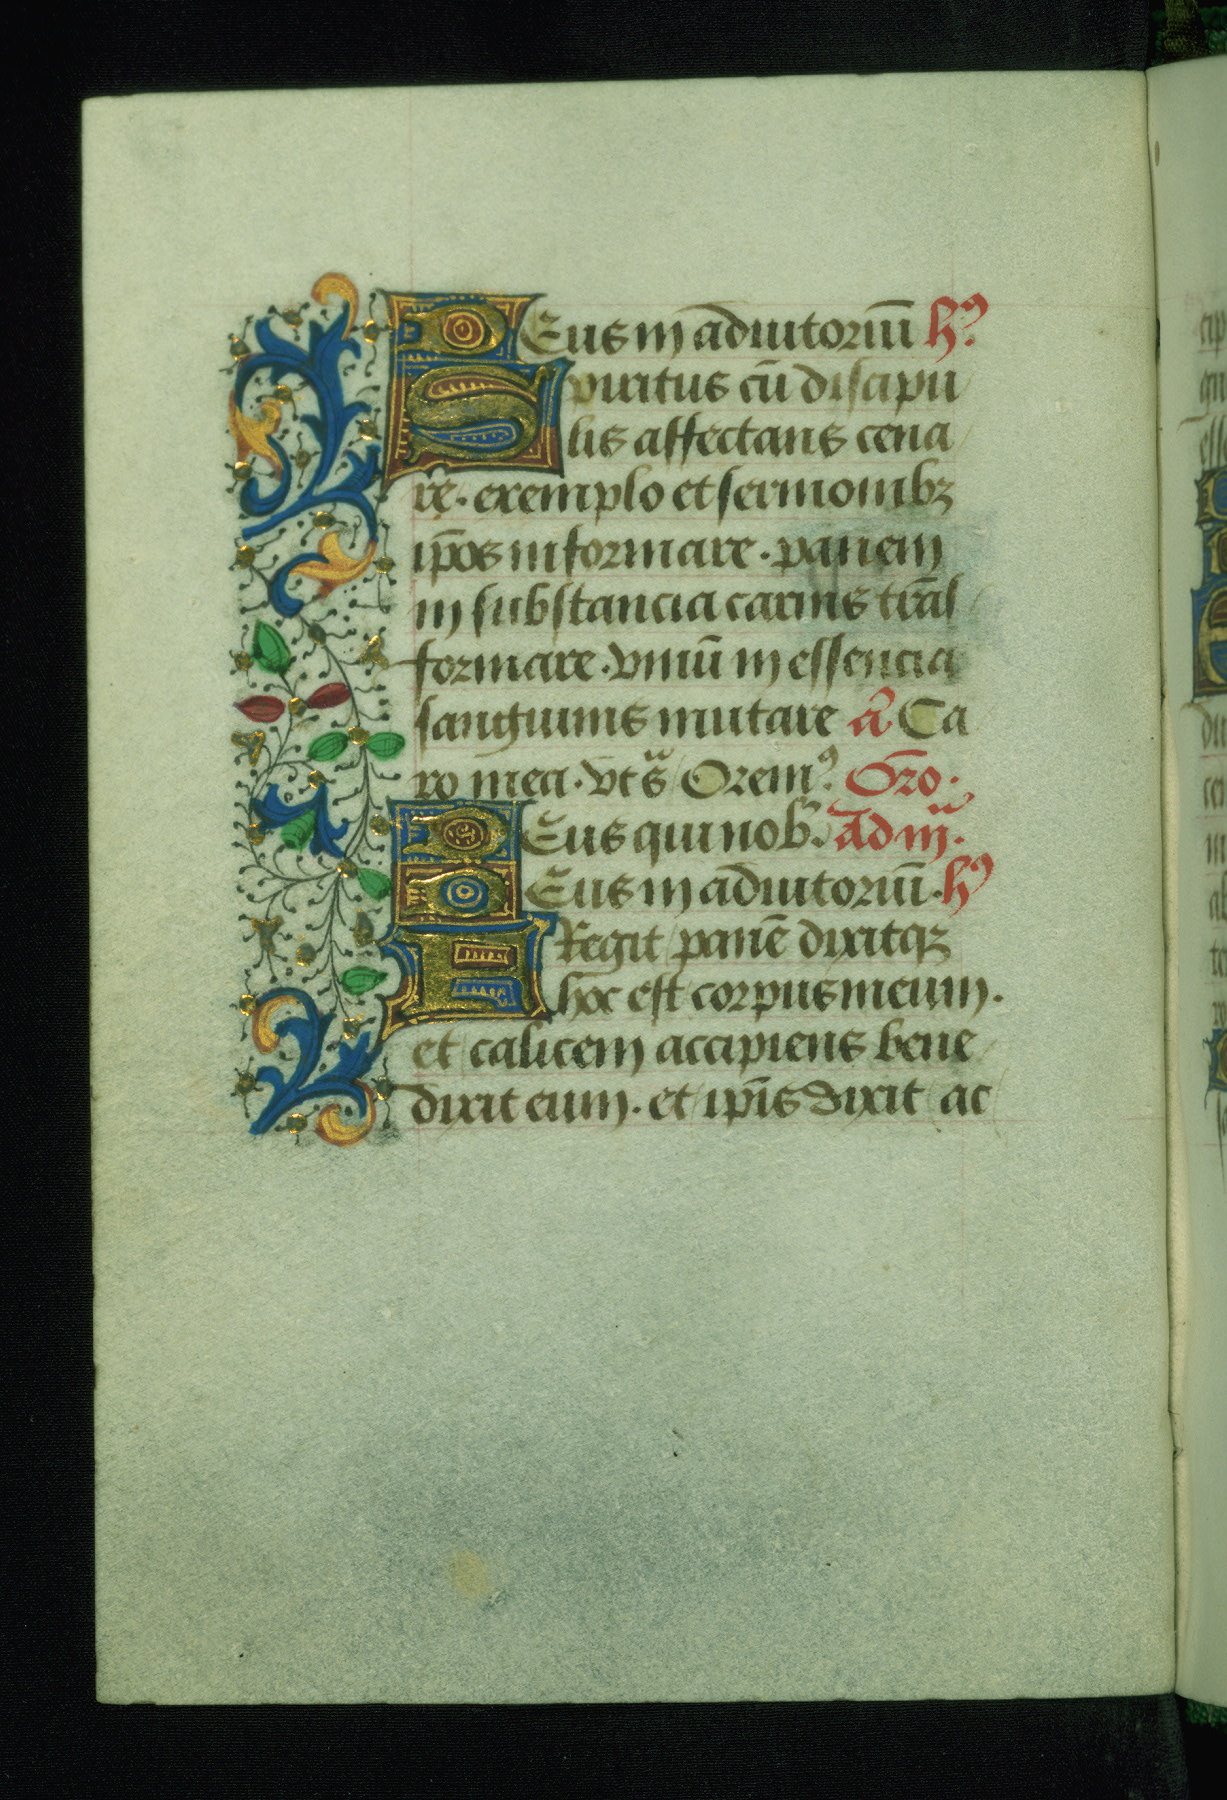 Deus in adiutoriū h⁹.
Spiritus cū discipu
lis affectans cena
re. exemplo et sermonibꝫ
ip̄os informare. panem
in substancia carnis trās
formare. vinū in essencia
sanguinis mutare a᷑ Ca
ro mea. vt sᷓ Orem⁹. Oro.
Deus qui nob̄. Ad iij.
Deus in adiutoriū. h⁹
Fregit panē dixitqꝫ
hoc est corpus meum.
et calicem accipiens bene
dixit eum. et ip̄is dixit ac